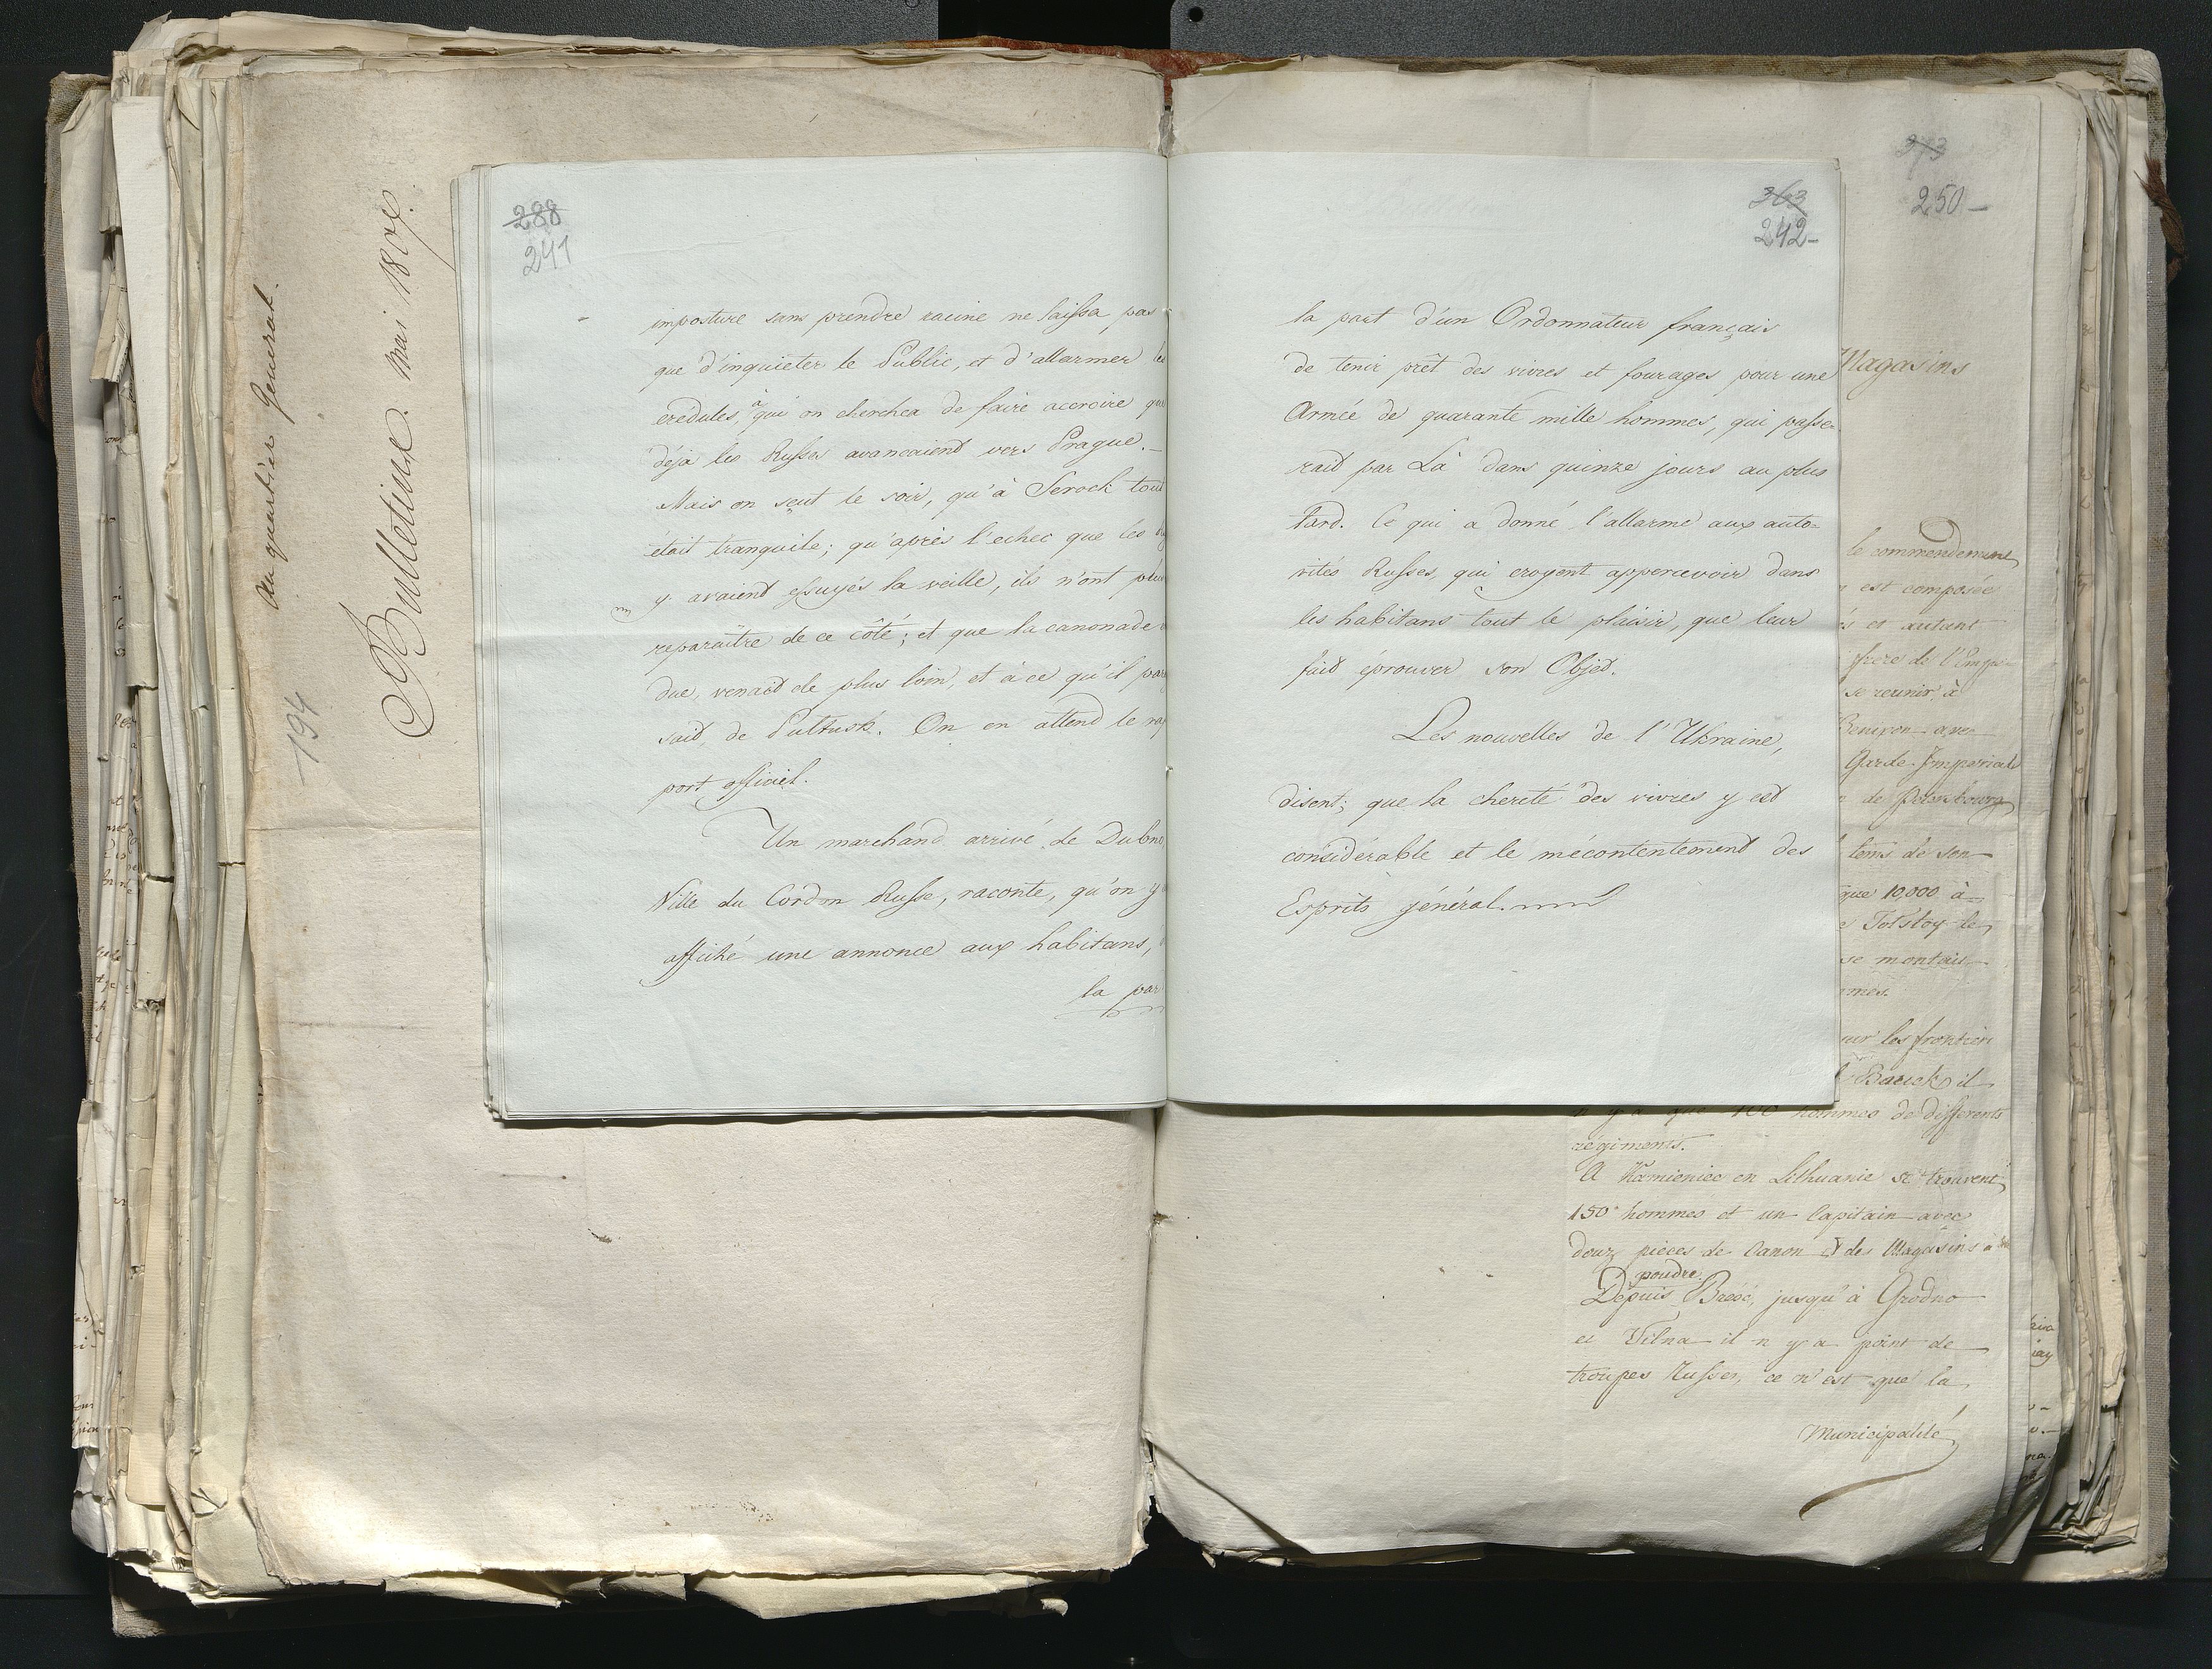 Au quartier General.
Bulletine. Mai 1807.
194
288
241
imposture sans prendre racine ne laissa pas
que d'inquieter le Public, et d'allarmer les
crédules, à qui on chercha de faire accroire que
déja les Russes avancaient vers Prague. —
Mais on sçut le soir, qu'à Serock tout
était tranquile; qu'après l'echec que les
y avaient essuyés la veille, ils n'ont plus
reparaître de ce côté; et que la canonade
due, venait de plus loin, et à ce qu'il parai
sait, de Pultusk. On en attend le rap
port officiel.
Un marchand arrivé de Dubno
Ville du Cordon Russe, raconte, qu'on y
affiché une annonce aux habitans,
la par
363
242-
la part d'un Ordonnateur français
de tenir prêt des vivres et fourages pour une
Armée de quarante mille hommes, qui passe=
rait par Là dans quinze jours au plus
tard. Ce qui a donné l'allarme aux auto=
rités Russes, qui croyent appercevoir dans
les habitans tout le plaisir, que leur
fait éprouver son Objet.
Les nouvelles de l'Ukraine,
disent; que la chereté des vivres y est
considérable et le mécontentement des
Esprits général.
273
250-
Magasins
le commendement
est composée
és et autant
frere de l'Empe
se reunir à
Benixon avec
Garde-Imperiale
de Petersbourg
tems de son
que 10,000 à
Tolstoy le
se montait
mes.
sur les frontier
Barsck il
n'y a que 100 hommes de differents
régiments.
A Kamieniec en Lithuanie se trouvent
150 hommes et un Capitain avec
douz pieces de Canon et des Magasins à
poudre.
Depuis Brześć, jusqu'à Grodno
et Vilna il n'y a point de
troupes Russes, ce n'est que la
Municipalité